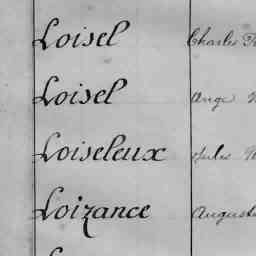 Loisel Charles
Loisel Ange
Loiseleux Jules
Loizance Auguste